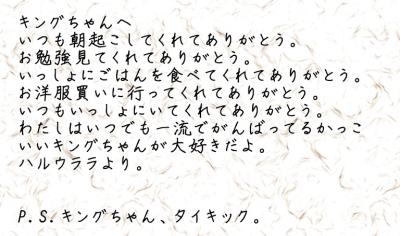 キングちゃんへ
いつも朝起こしてくれてありがとう。
お勉強見てくれてありがとう。
いっしょにごはんを食べてくれてありがとう。
お洋服買いに行ってくれてありがとう。
いつもいっしょにいてくれてありがとう。
わたしはいつでも一流でがんばってるかっこ
いいキングちゃんが大好きだよ。
ハルウララより。
P.S.キングちゃん、タイキック。